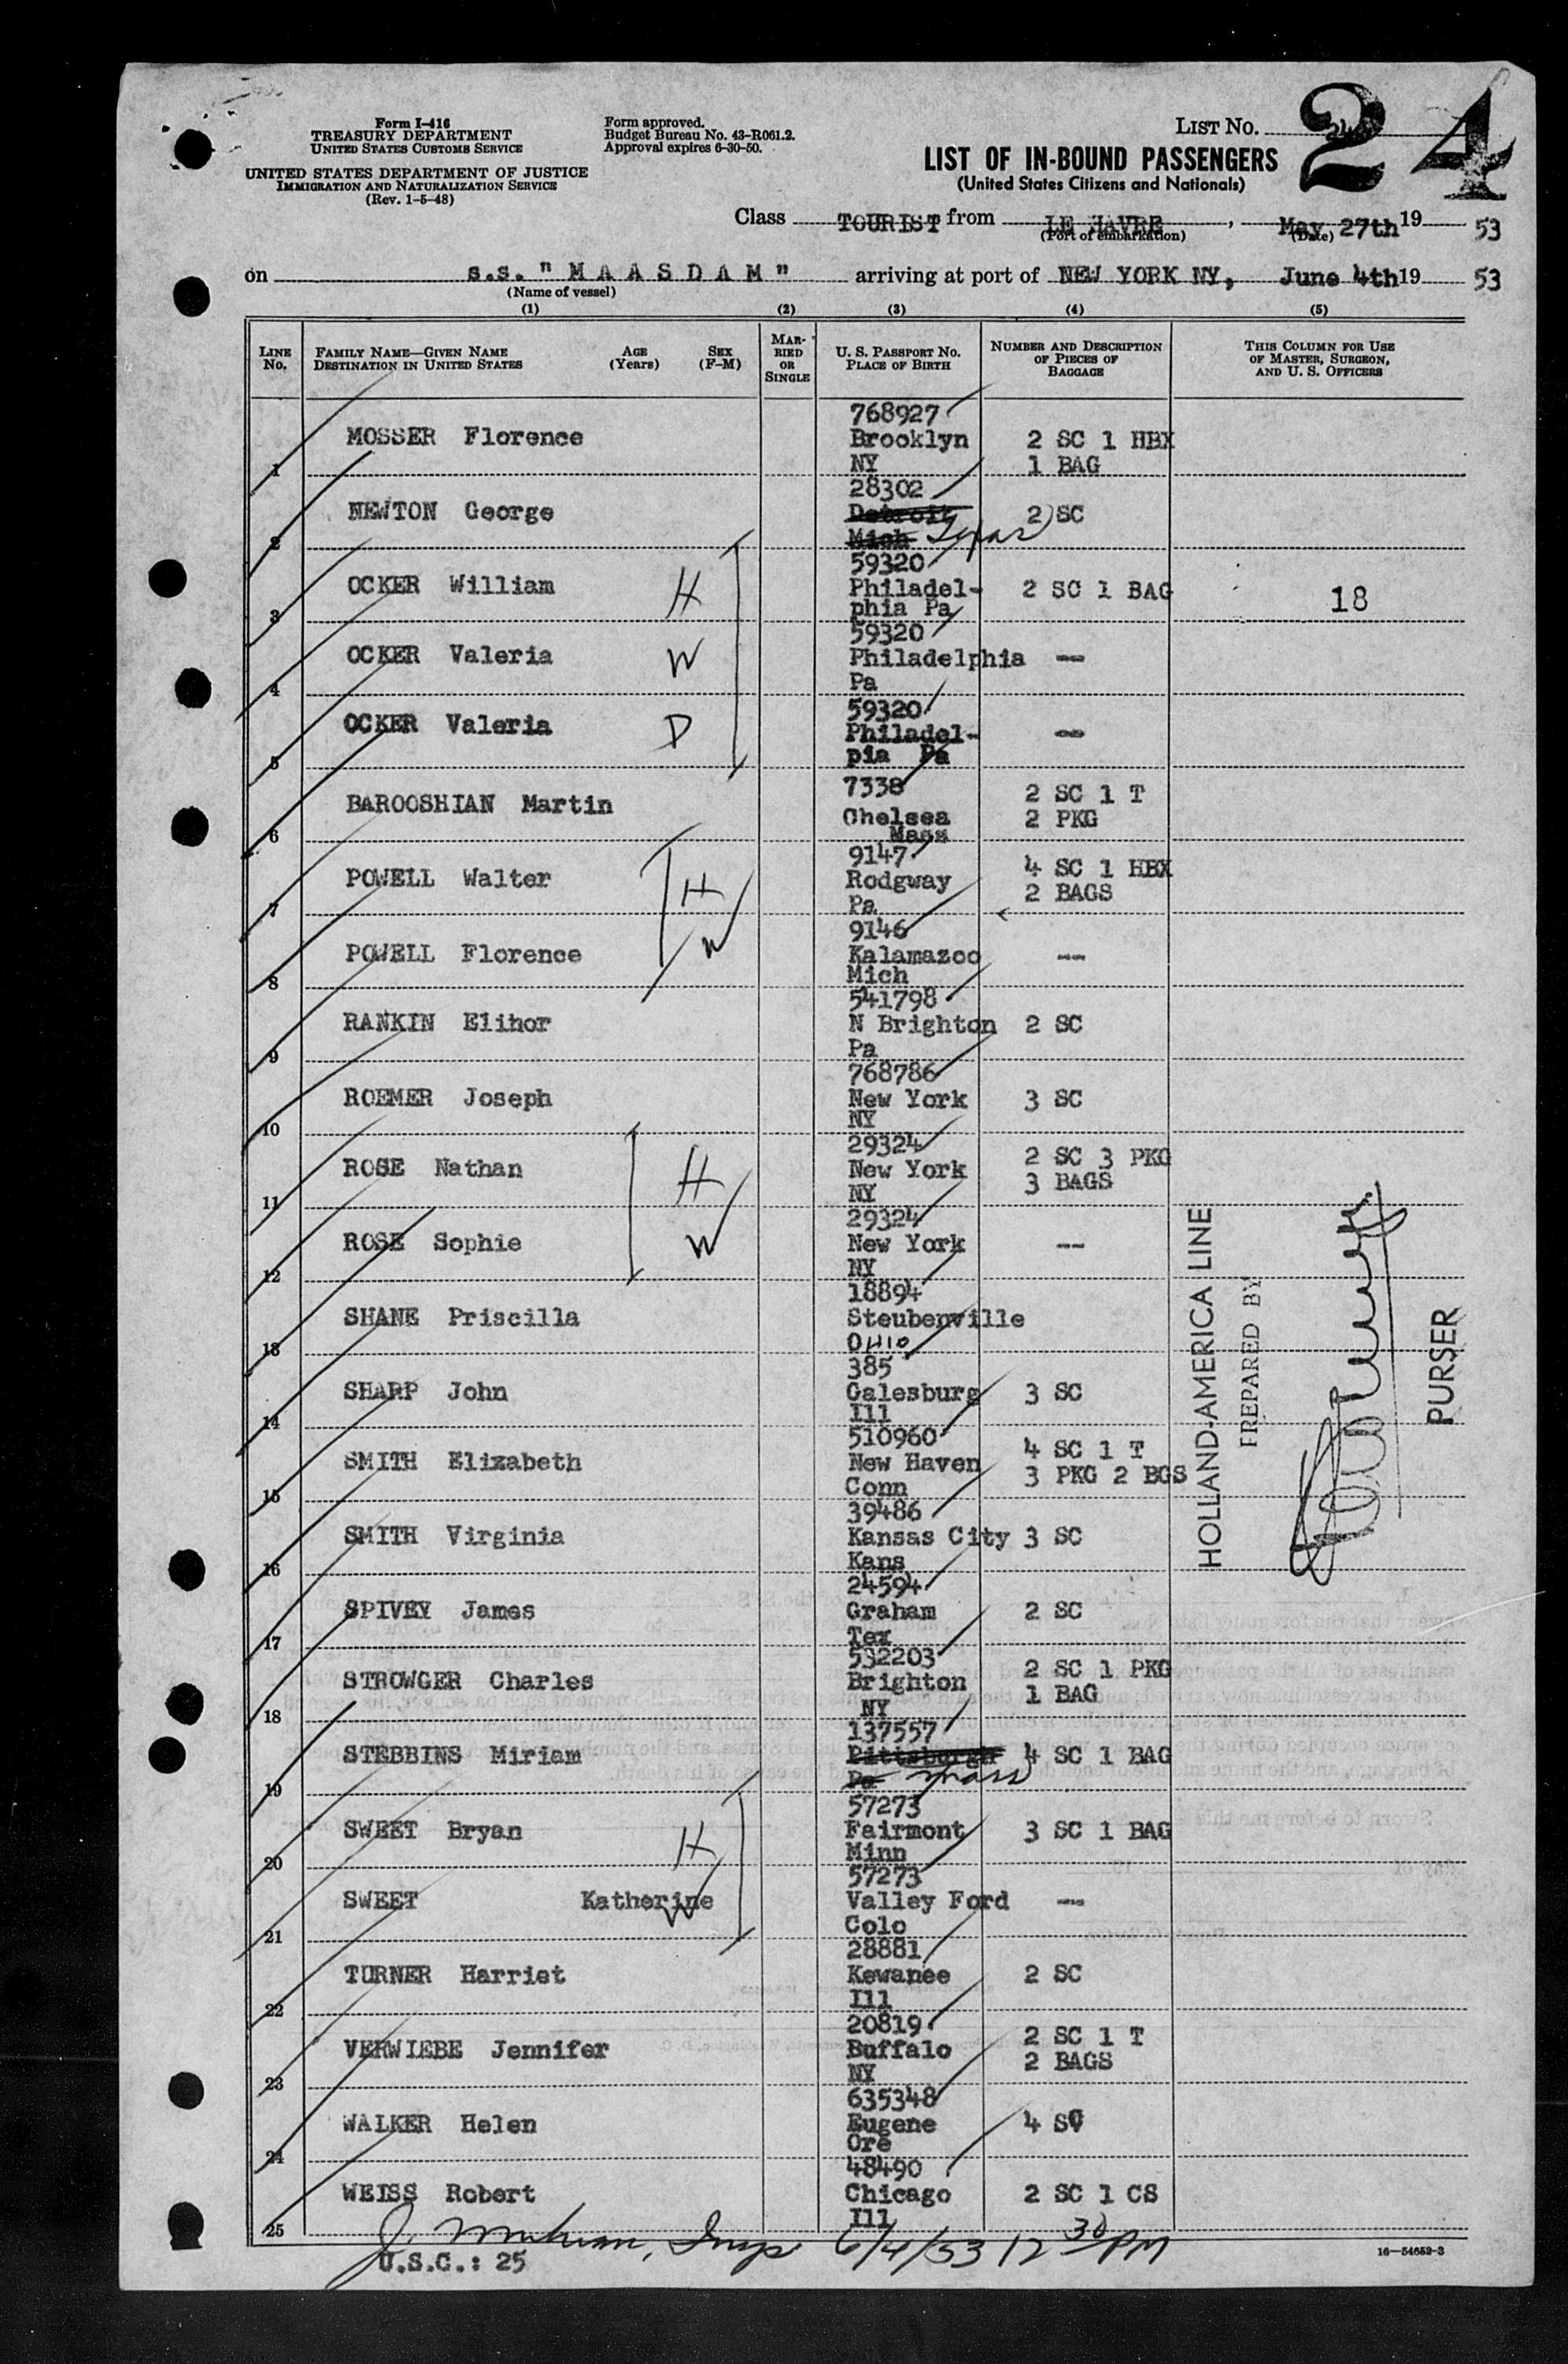 Form I-416
TREASURY DEPARTMENT
UNITED STATES CUSTOMS SERVICE
UNITED STATES DEPARTMENT OF JUSTICE
IMMIGRATION AND NATURALIZATION SERVICE
(Rev. 1-5-48)
Form approved.
Budget Bureau No. 43-R061.2.
Approval expires 6-30-50.
LIST NO. 24
24
LIST OF IN-BOUND PASSENGERS
(United States Citizens and Nationals)
Class TOURIST from LE HAVRE, May 27th 19 53
(Port of embarkation) (Date)
on s.s. "MAASDAM" arriving at port of NEW YORK NY, June 4th 19 53
(Name of vessel)
(1) (2) (3) (4) (5)
LINE NO.
FAMILY NAME—GIVEN NAME
DESTINATION IN UNITED STATES
AGE (Years)
SEX (F-M)
MARRIED OR SINGLE
U. S. PASSPORT NO.
PLACE OF BIRTH
NUMBER AND DESCRIPTION OF PIECES OF BAGGAGE
THIS COLUMN FOR USE OF MASTER, SURGEON, AND U. S. OFFICERS
1 MOSSER Florence 768927 Brooklyn NY 2 SC 1 HBX 1 BAG
2 NEWTON George 28302 Detroit Mich Texas 2 SC
3 OCKER William H 59320 Philadel-phia Pa 2 SC 1 BAG 18
4 OCKER Valeria W 59320 Philadelphia Pa --
5 OCKER Valeria D 59320 Philadel-pia Pa --
6 BAROOSHIAN Martin 7338 Chelsea Mass 2 SC 1 T 2 PKG
7 POWELL Walter H 9147 Rodgway Pa 4 SC 1 HBX 2 BAGS
8 POWELL Florence W 9146 Kalamazoo Mich --
9 RANKIN Elinor 541798 N Brighton Pa 2 SC
10 ROEMER Joseph 768786 New York NY 3 SC
11 ROSE Nathan H 29324 New York NY 2 SC 3 PKG 3 BAGS
12 ROSE Sophie W 29324 New York NY --
13 SHANE Priscilla 18894 Steubenville OHIO
14 SHARP John 385 Galesburg Ill 3 SC
15 SMITH Elizabeth 510960 New Haven Conn 4 SC 1 T 3 PKG 2 BGS
16 SMITH Virginia 39486 Kansas City Kans 3 SC
17 SPIVEY James 24594 Graham Tex 2 SC
18 STROWGER Charles 532203 Brighton NY 2 SC 1 PKG 1 BAG
19 STEBBINS Miriam 137557 Pittsburgh Pa Mass 4 SC 1 BAG
20 SWEET Bryan H 57273 Fairmont Minn 3 SC 1 BAG
21 SWEET Katherine W 57273 Valley Ford Colo --
22 TURNER Harriet 28881 Kewanee Ill 2 SC
23 VERWIEBE Jennifer 20819 Buffalo NY 2 SC 1 T 2 BAGS
24 WALKER Helen 635348 Eugene Ore 4 SC
25 WEISS Robert 48490 Chicago Ill 2 SC 1 CS
HOLLAND-AMERICA LINE
PREPARED BY
PURSER
6/4/53 12 30 PM
U.S.C.: 25
16—54652-3